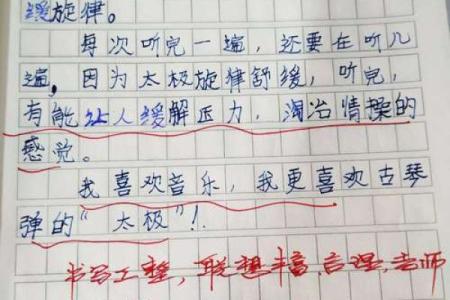 缓旋律。
每次听完一遍，还要在听几
遍，因为太极旋律舒缓，听完，
有能让人缓解压力，陶冶情操的
感觉。
我喜欢音乐，我更喜欢古琴
弹的“太极”！
书写工整，联想丰富，合理，老师